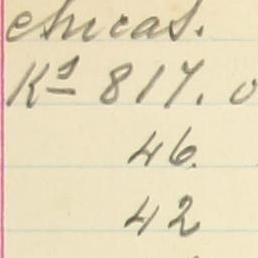 chicas.
Ks 817. 0
46.
42